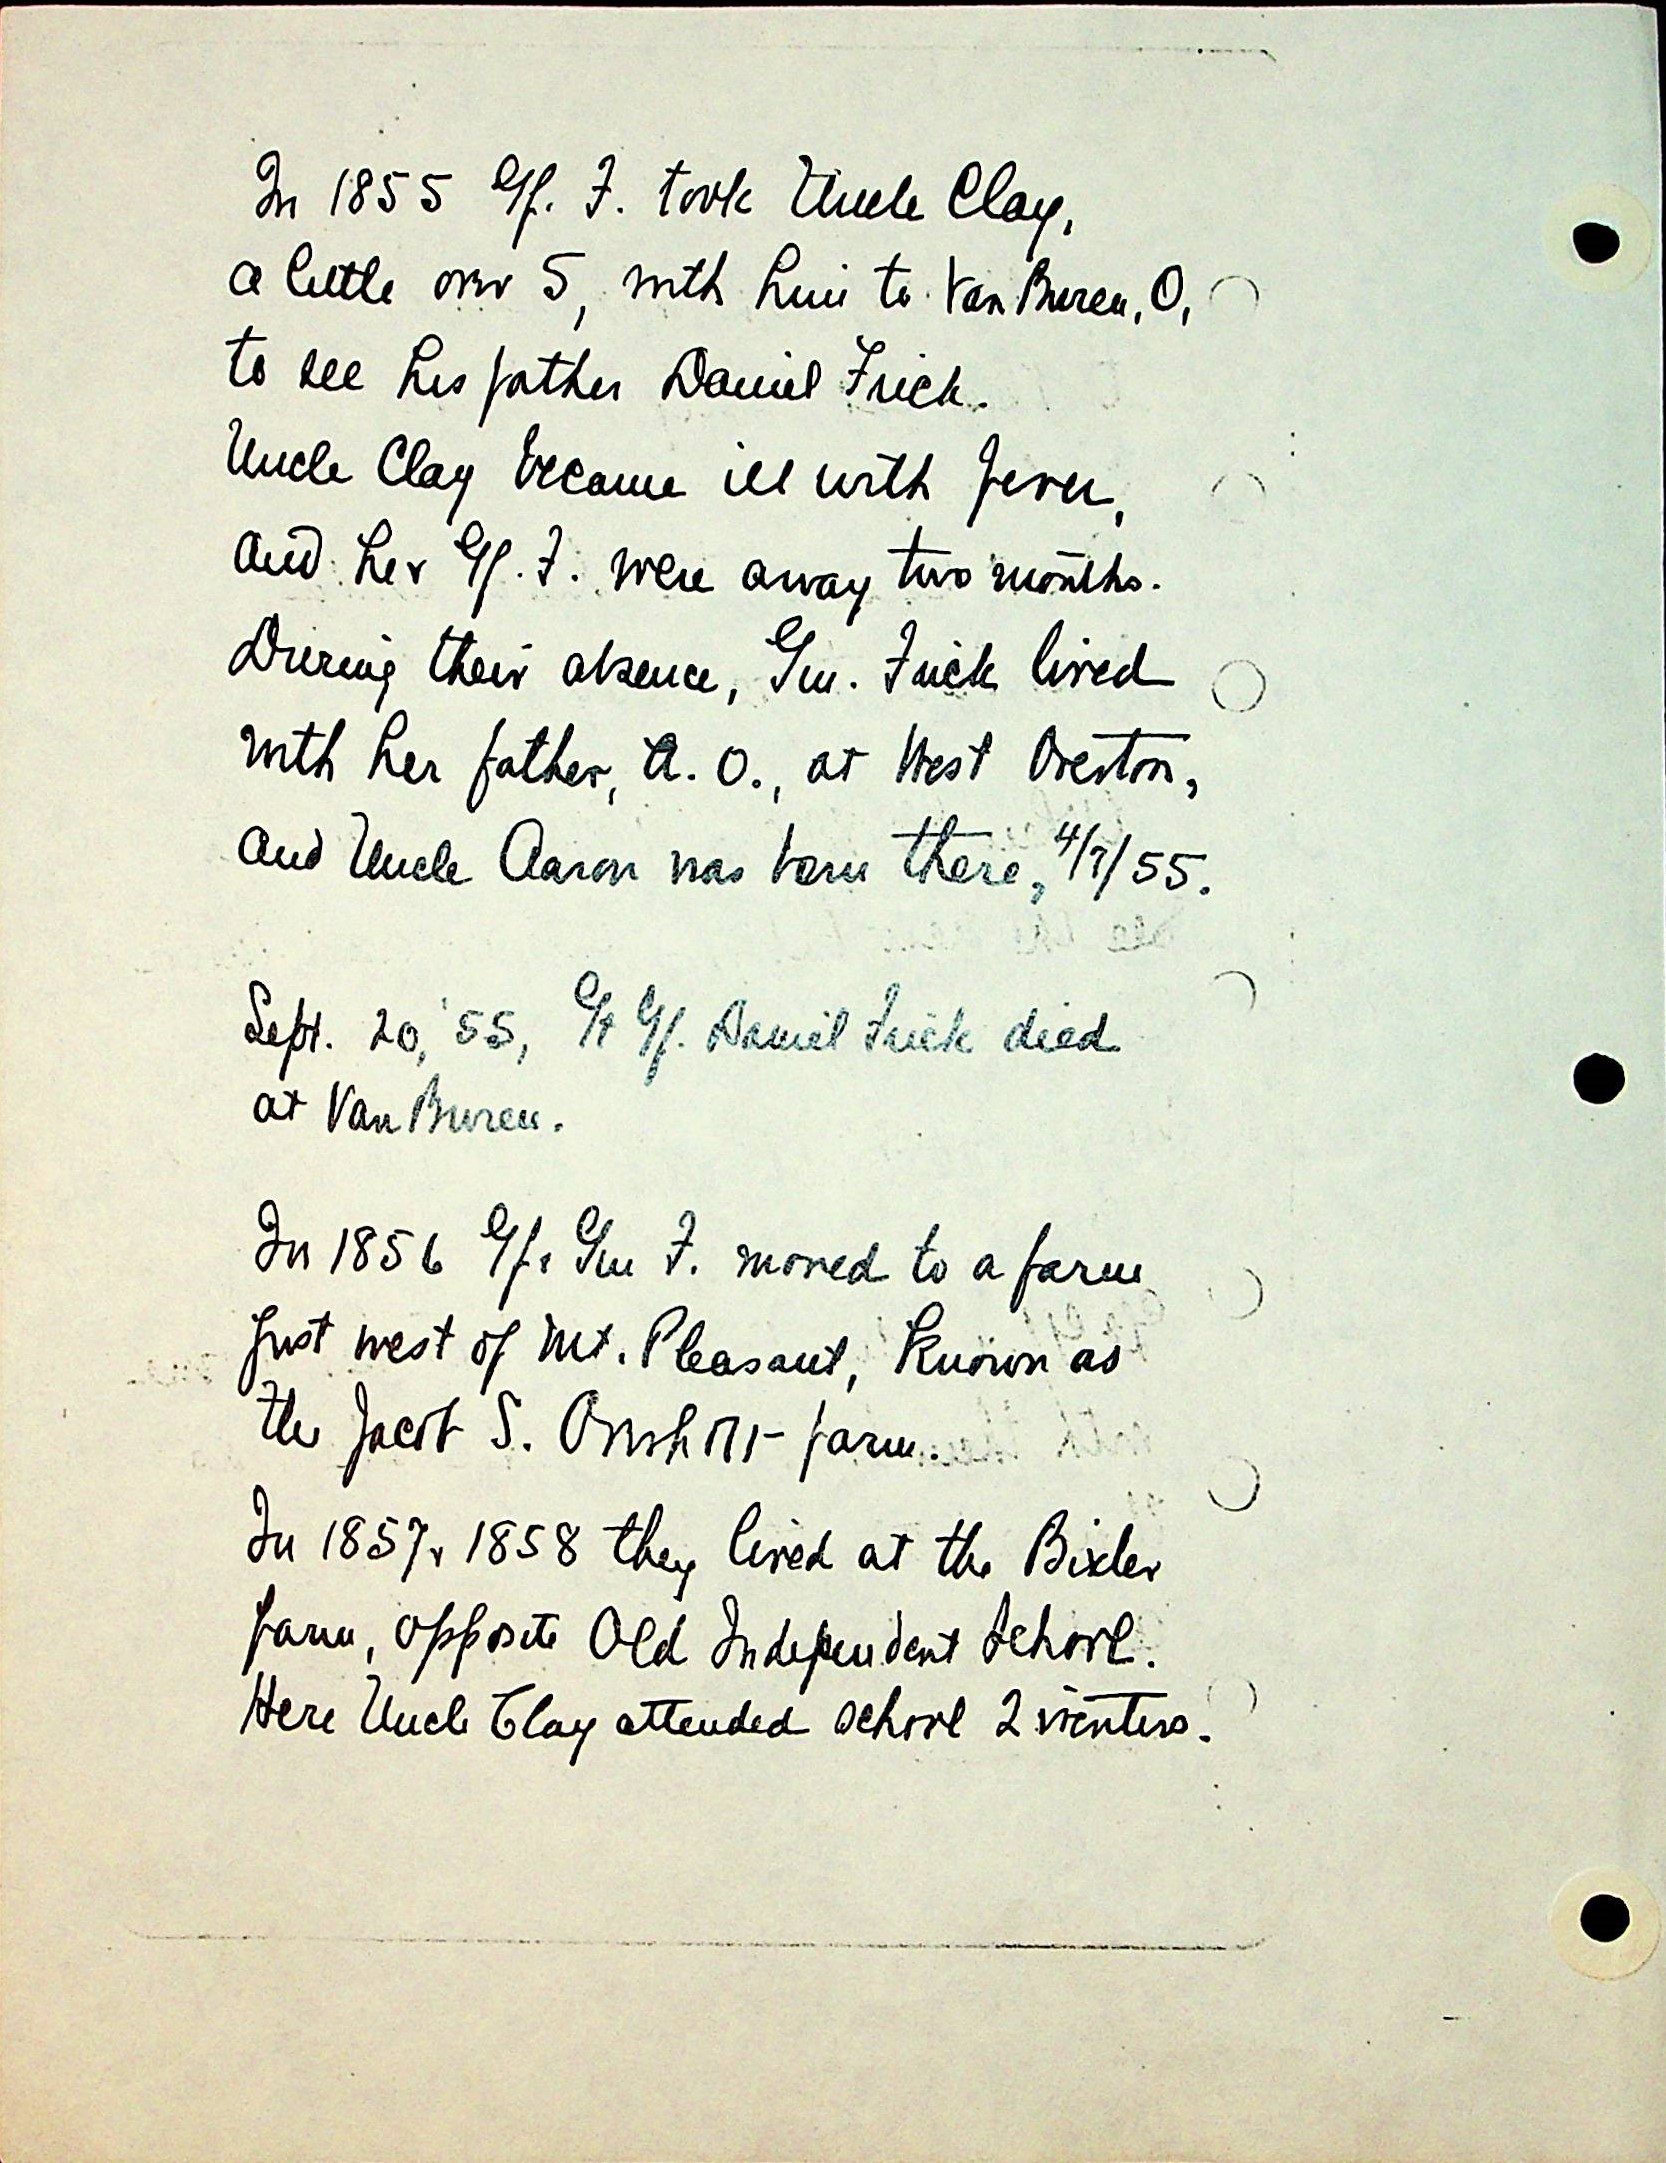 In 1855 Gf. F. took Uncle Clay,
a little over 5, with him to Van Buren, O,
to see his father Daniel Frick.
Uncle Clay became ill with fever,
and he & Gf. F. were away two months.
During their absence, Gm. Frick lived
with her father, A. O., at West Overton,
and Uncle Aaron was born there, 4/7/55.
Sept. 20, '55, Gt Gf. Daniel Frick died
at Van Buren.
In 1856 Gf & Gm F. moved to a farm
just west of Mt. Pleasant, known as
the Jacob S. Overholt farm.
In 1857 & 1858 they lived at the Bixler
farm, opposite Old Independent School.
Here Uncle Clay attended school 2 winters.